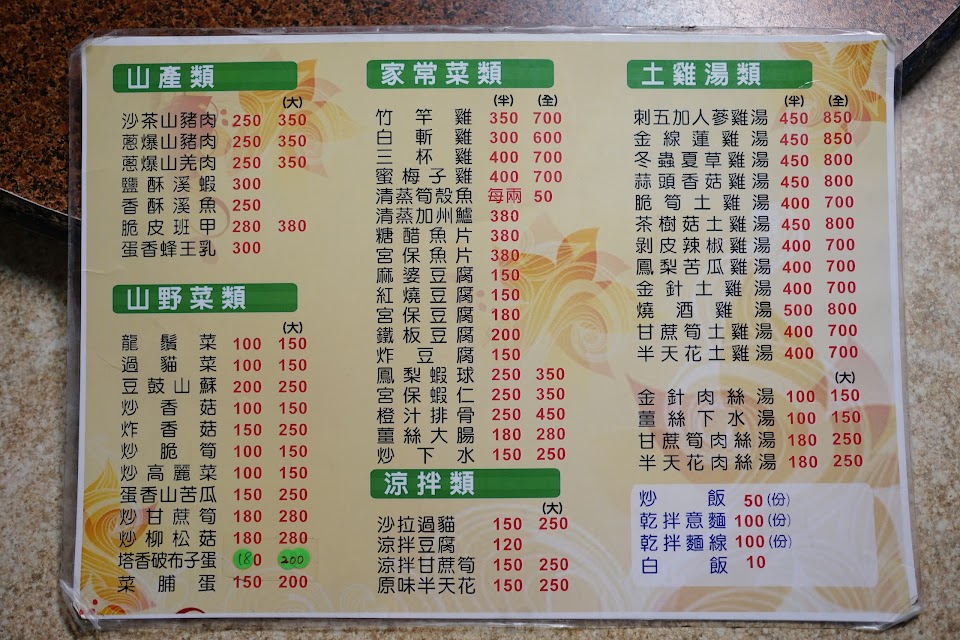 山產類
(大)
沙茶山豬肉 250 350
蔥爆山豬肉 250 350
蔥爆山羌肉 250 350
鹽酥溪蝦 300
香酥溪魚 250
脆皮班甲 280 380
蛋香蜂王乳 300
山野菜類
(大)
龍鬚菜 100 150
過貓菜 100 150
豆鼓山蘇 200 250
炒香菇 100 150
炸香菇 150 250
炒脆筍 100 150
炒高麗菜 100 150
蛋香山苦瓜 150 250
炒甘蔗筍 180 280
炒柳松菇 180 280
塔香破布子蛋 180 200
菜脯蛋 150 200
家常菜類
(半) (全)
竹竿雞 350 700
白斬雞 300 600
三杯雞 400 700
蜜梅子雞 400 700
清蒸筍殼魚 每兩 50
清蒸加州鱸 380
糖醋魚片 380
宮保魚片 380
麻婆豆腐 150
紅燒豆腐 150
宮保豆腐 180
鐵板豆腐 200
炸豆腐 150
鳳梨蝦球 250 350
宮保蝦仁 250 350
橙汁排骨 250 450
薑絲大腸 180 280
炒下水 150 250
涼拌類
(大)
沙拉過貓 150 250
涼拌豆腐 120
涼拌甘蔗筍 150 250
原味半天花 150 250
土雞湯類
(半) (全)
刺五加人蔘雞湯 450 850
金線蓮雞湯 450 850
冬蟲夏草雞湯 450 800
蒜頭香菇雞湯 450 800
脆筍土雞湯 400 700
茶樹菇土雞湯 450 800
剝皮辣椒雞湯 400 700
鳳梨苦瓜雞湯 400 700
金針土雞湯 400 700
燒酒雞湯 500 800
甘蔗筍土雞湯 400 700
半天花土雞湯 400 700
(大)
金針肉絲湯 100 150
薑絲下水湯 100 150
甘蔗筍肉絲湯 180 250
半天花肉絲湯 180 250
炒飯 50(份)
乾拌意麵 100(份)
乾拌麵線 100(份)
白飯 10